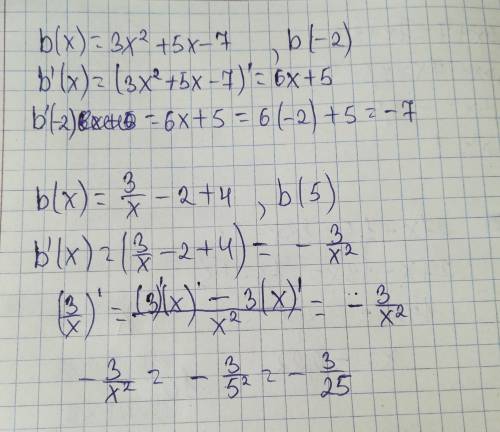 b(x) = 3x² + 5x - 7 , b(-2)
b'(x) = (3x² + 5x - 7)' = 6x + 5
b'(-2) = 6x + 5 = 6(-2) + 5 = -7
b(x) = 3/x - 2 + 4 , b(5)
b'(x) = (3/x - 2 + 4) = - 3/x²
(3/x)' = ((3)'(x)' - 3(x)')/x² = - 3/x²
- 3/x² = - 3/5² = - 3/25